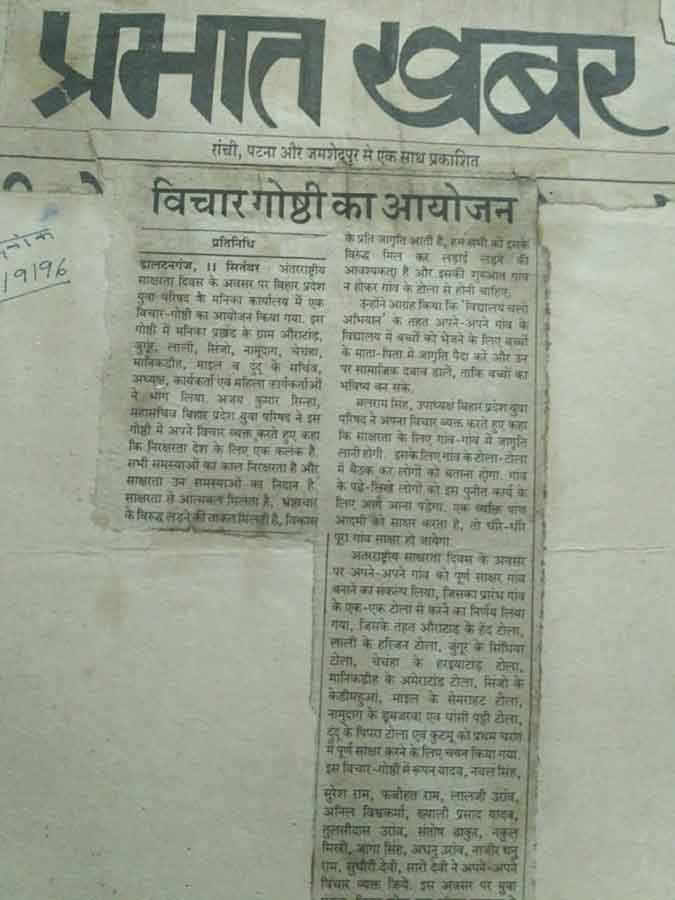 प्रभात खबर
रांची, पटना और जमशेदपुर से एक साथ प्रकाशित
9/96
विचार गोष्ठी का आयोजन
प्रतिनिधि
डालटनगंज, 11 सितंबर : अंतराष्ट्रीय
साक्षरता दिवस के अवसर पर बिहार प्रदेश
युवा परिषद के मनिका कार्यालय में एक
विचार-गोष्ठी का आयोजन किया गया. इस
गोष्ठी में मनिका प्रखंड के ग्राम औराटांड़,
जुंगूर, लाली, सिंजो, नामूदाग, चेचंहा,
मानिकडीह, माइल व दुंदु के सचिव,
अध्यक्ष, कार्यकर्ता एवं महिला कार्यकर्ताओं
ने भाग लिया. अजय कुमार सिन्हा,
महासचिव बिहार प्रदेश युवा परिषद ने इस
गोष्ठी में अपने विचार व्यक्त करते हुए कहा
कि निरक्षरता देश के लिए एक कलंक है.
सभी समस्याओं का काल निरक्षरता है और
साक्षरता उन समस्याओं का निदान है.
साक्षरता से आत्मबल मिलता है, भ्रष्टाचार
के विरुद्ध लड़ने की ताकत मिलती है, विकास
के प्रति जागृति आती है, हम सभी को इसके
विरुद्ध मिल कर लड़ाई लड़ने की
आवश्यकता है और इसकी शुरुआत गांव
न होकर गांव के टोला से होनी चाहिए.
उन्होंने आग्रह किया कि 'विद्यालय चलो
अभियान' के तहत अपने-अपने गांव के
विद्यालय में बच्चों को भेजने के लिए बच्चों
के माता-पिता में जागृति पैदा करें और उन
पर सामाजिक दबाव डालें, ताकि बच्चों का
भविष्य बन सके.
बलराम सिंह, उपाध्यक्ष बिहार प्रदेश युवा
परिषद ने अपना विचार व्यक्त करते हुए कहा
कि साक्षरता के लिए गांव-गांव में जागृति
लानी होगी. इसके लिए गांव के टोला-टोला
में बैठक कर लोगों को बताना होगा. गांव
के पढ़े-लिखे लोगों को इस पुनीत कार्य के
लिए आगे आना पड़ेगा. एक व्यक्ति पांच
आदमी को साक्षर करता है, तो धीरे-धीरे
पूरा गांव साक्षर हो जायेगा.
अंतराष्ट्रीय साक्षरता दिवस के अवसर
पर अपने-अपने गांव को पूर्ण साक्षर गांव
बनाने का संकल्प लिया, जिसका प्रारंभ गांव
के एक-एक टोला से करने का निर्णय लिया
गया, जिसके तहत औराटांड़ के हेंद टोला,
लाली के हरिजन टोला, जुंगूर के सिंधिया
टोला, चेचंहा के हरइयाटांड़ टोला,
मानिकडीह के अमेराटांड टोला, सिंजो के
केडीमहुआं, माइल के सेमराहट टोला,
नामूदाग के डुमजरवा एवं घासी पट्टी टोला,
दुंदु के पिपरा टोला एवं कुटमू को प्रथम चरण
में पूर्ण साक्षर करने के लिए चयन किया गया.
इस विचार-गोष्ठी में रूपन यादव, नवल सिंह,
सुरेश राम, फबीहत राम, लालजी उरांव,
अनिल विश्वकर्मा, ख्याली प्रसाद यादव,
तुलसीदास उरांव, संतोष ठाकुर, नकुल
मिस्त्री, जागा सिंह, अधनु उरांव, नाजीर धनु
राम, सुधीरी देवी, सारो देवी ने अपने-अपने
विचार व्यक्त किये. इस अवसर पर युवा